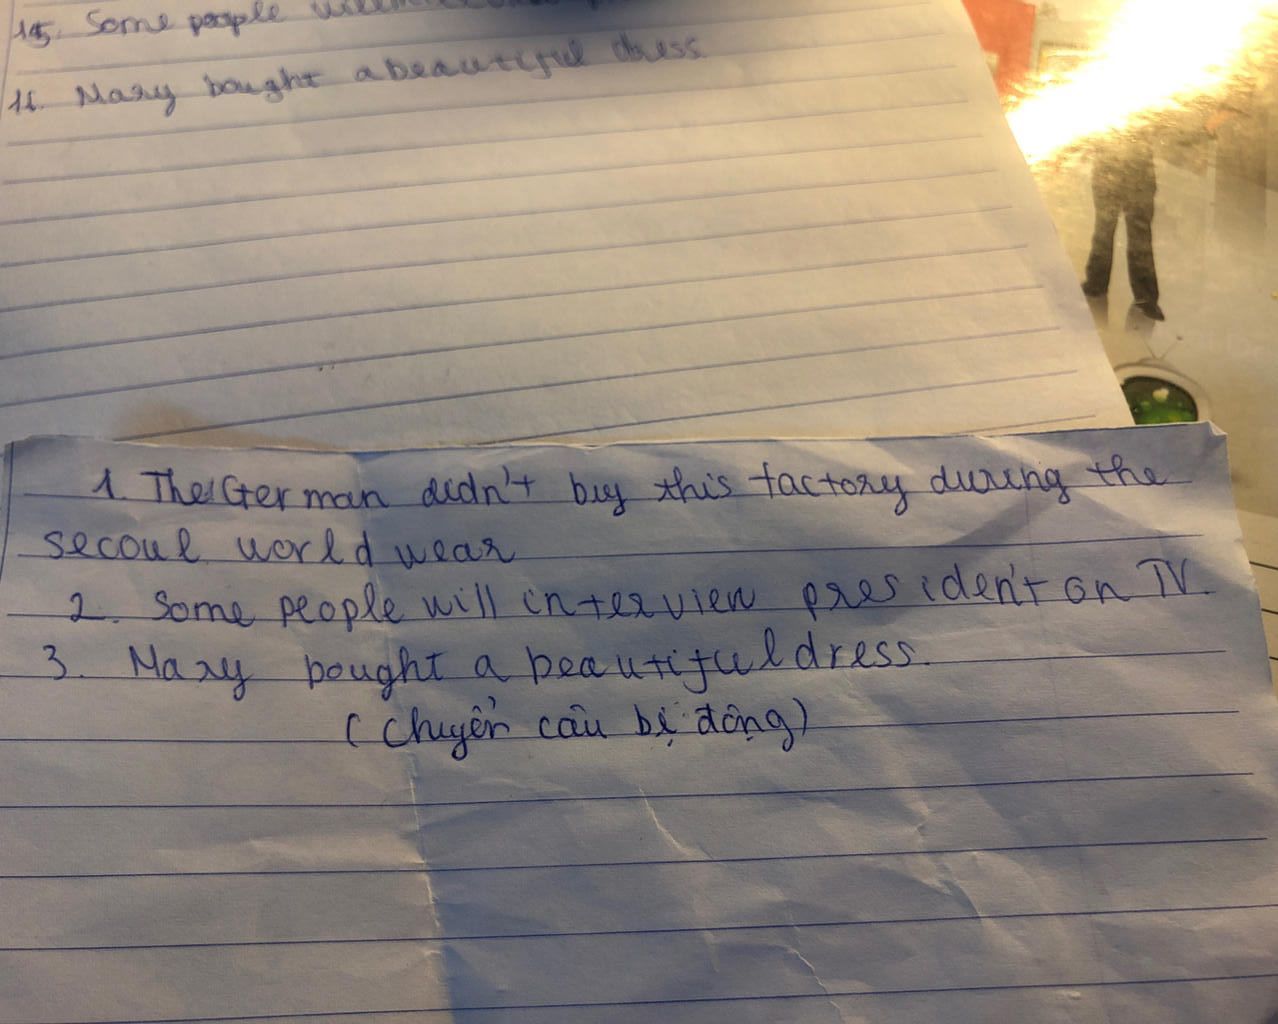 15. Some people
16. Mary bought a beautiful dress.
1. The German didn't buy this factory during the
secoul world wear
2. Some people will interview presiden't on TV.
3. Mary bought a beautiful dress.
(chuyển câu bị động)